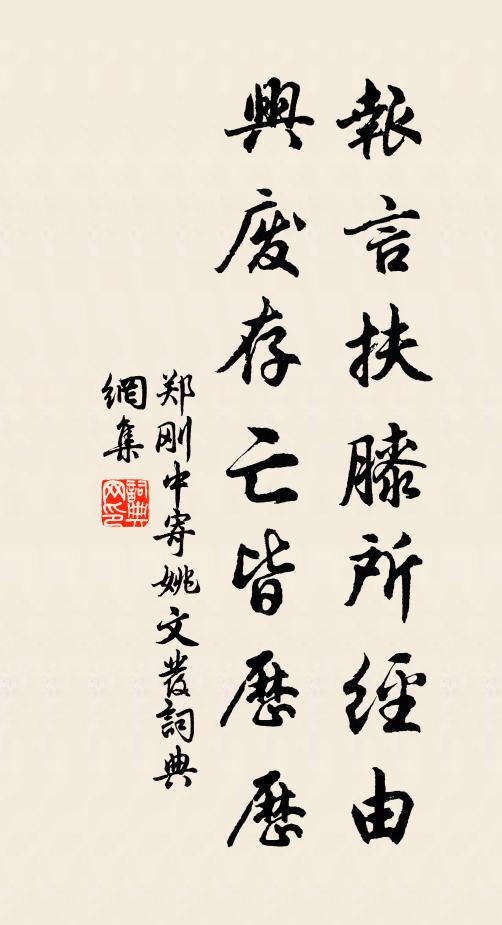 報言扶膝所經由
興废存亡皆歷歷
郑刚中寄姚文發詞典
網集
詞典
网印